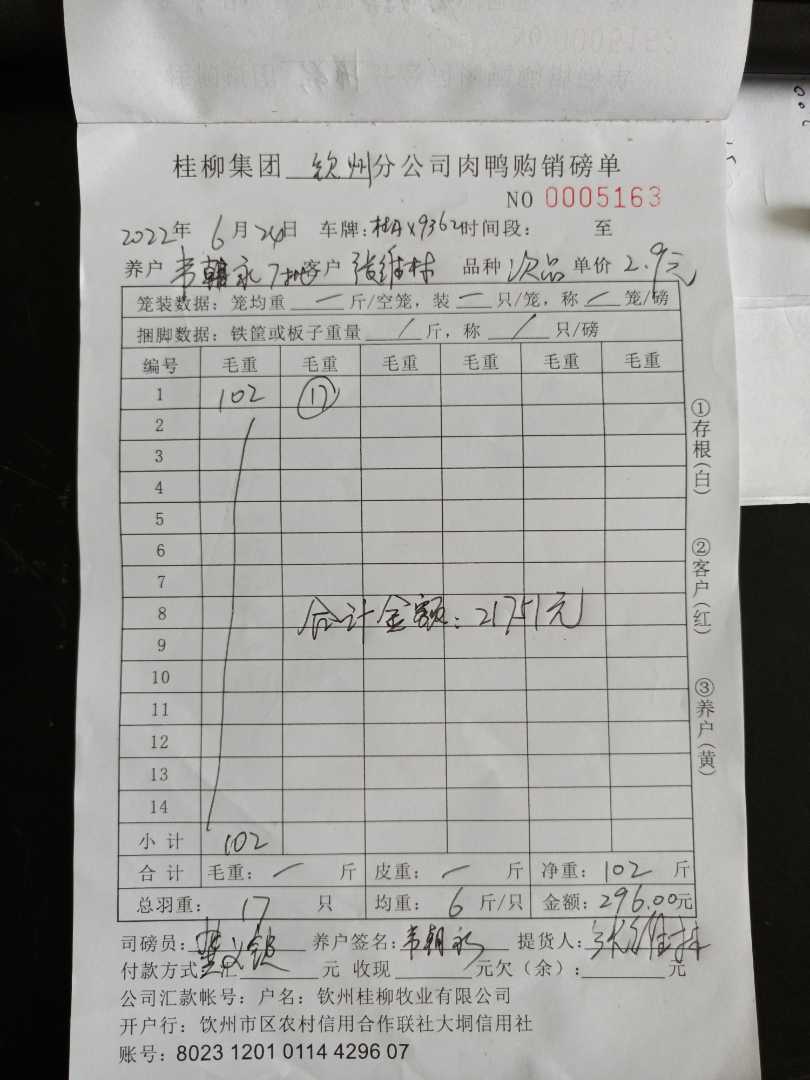 桂柳集团 钦州 分公司肉鸭购销磅单
NO 0005163
2022年 6月24日 车牌:桂AX9362 时间段: 至
养户 韦朝永 客户 张维林 品种 次品 单价 2.9元
笼装数据: 笼均重 一 斤/空笼, 装 一 只/笼, 称 / 笼/磅
捆脚数据: 铁筐或板子重量 / 斤, 称 / 只/磅
编号 毛重 毛重 毛重 毛重 毛重 毛重
1 102 17
2
3
4
5
6
7
8 合计金额: 21751元
9
10
11
12
13
14
小计 102
合计 毛重: 一 斤 皮重: 一 斤 净重: 102 斤
总羽重: 17 只 均重: 6 斤/只 金额: 296.00元
司磅员: 养户签名: 韦朝永 提货人: 张维林
付款方式: 汇 元 收现 元欠(余): 元
公司汇款帐号: 户名: 钦州桂柳牧业有限公司
开户行: 钦州市区农村信用合作联社大垌信用社
账号: 8023 1201 0114 4296 07
①存根(白)
②客户(红)
③养户(黄)